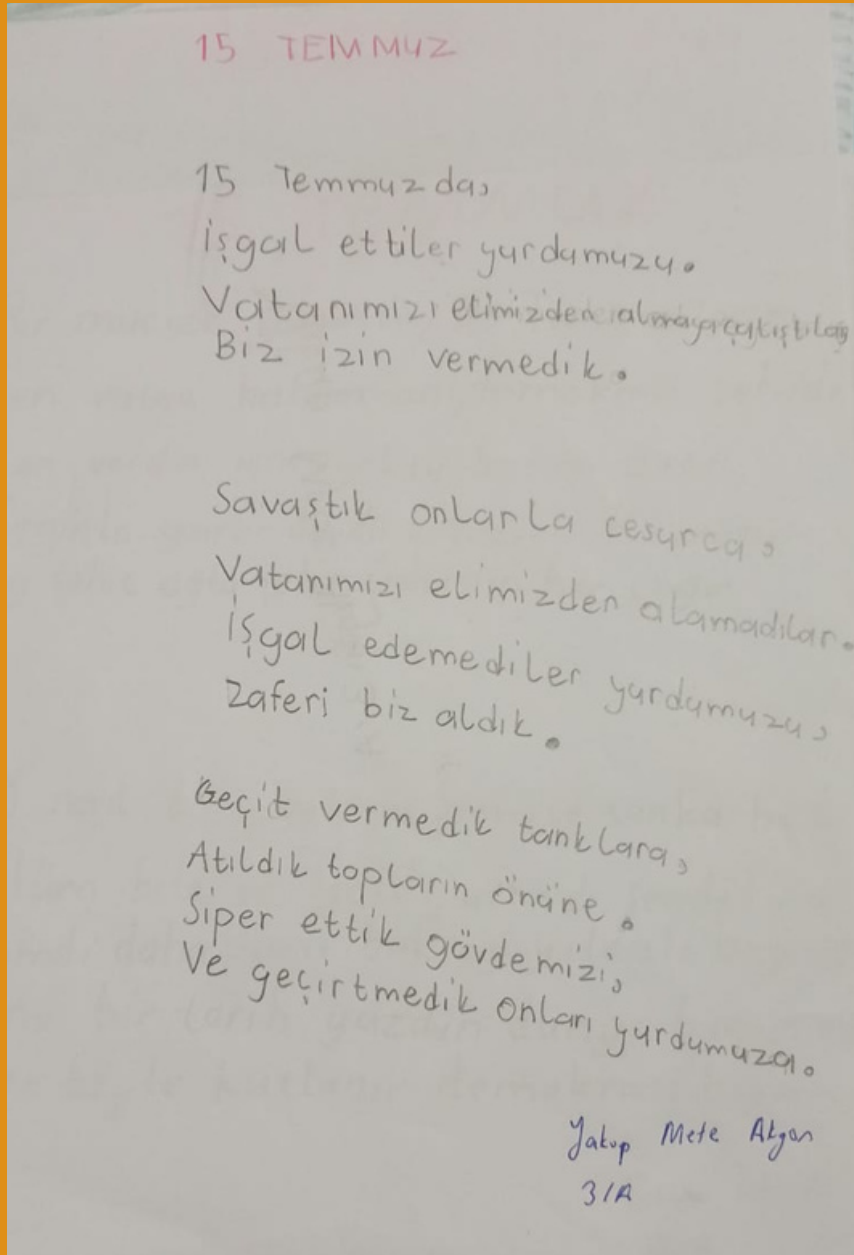 15 TEMMUZ
15 Temmuzda,
işgal ettiler yurdumuzu.
Vatanımızı elimizden almaya çalıştılar,
Biz izin vermedik.
Savaştık onlarla cesurca,
Vatanımızı elimizden alamadılar.
İşgal edemediler yurdumuzu,
Zaferi biz aldık.
Geçit vermedik tanklara,
Atıldık topların önüne.
Siper ettik gövdemizi,
Ve geçirtmedik onları yurdumuza.
Yakup Mete Akgan
3/A